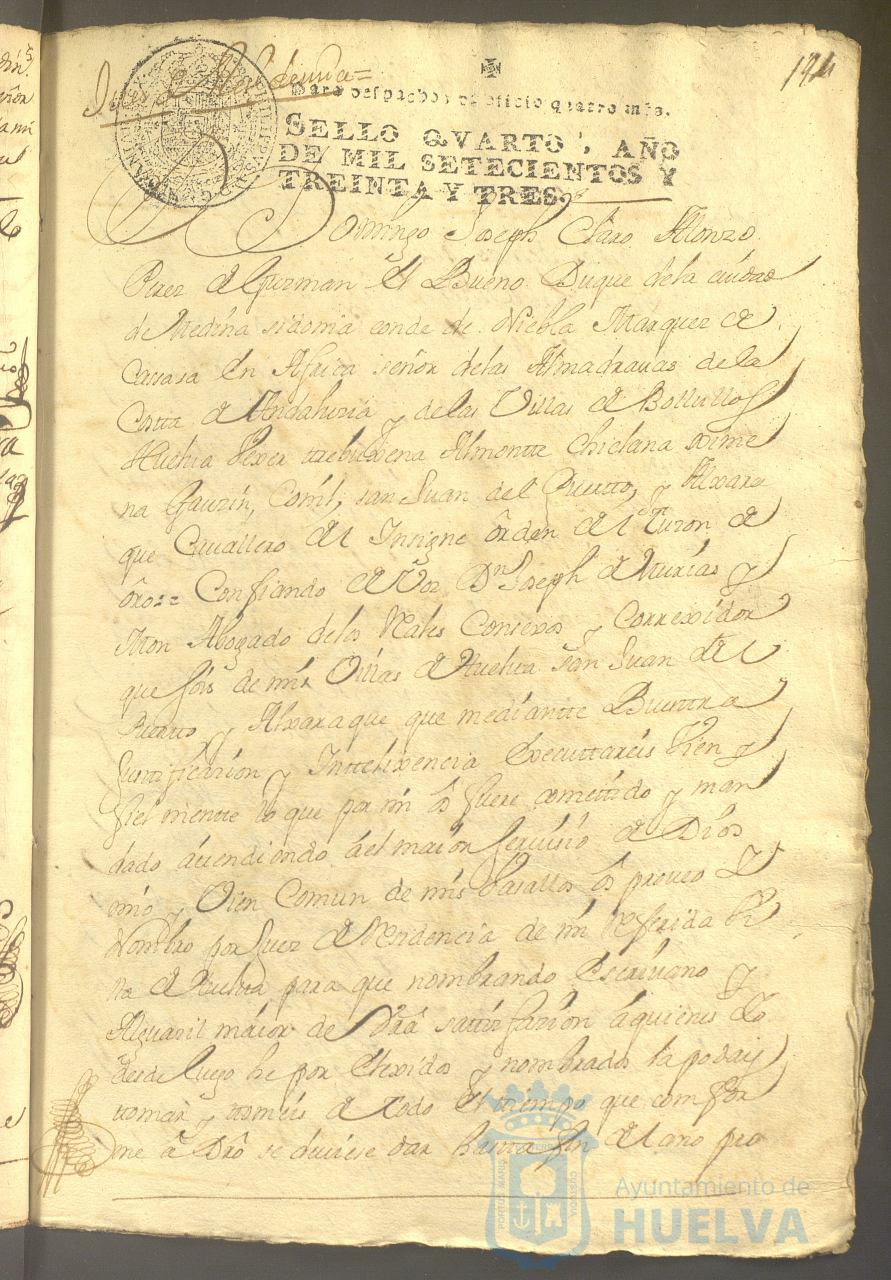 Para despachos de oficio quatro mrs.
SELLO QVARTO, AÑO
DE MIL SETECIENTOS Y
TREINTA Y TRES.
Domingo Joseph Claro Alonzo
Perez de Guzman el Bueno Duque de la ciudad
de Medina sidonia conde de Niebla Marquez de
Casasa en Africa señor de las Almadrauas de la
Costa de Andaluzia y de las Villas de Bollullos
Huelua Vexer trebuxena Almontte Chiclana xime
na Gauzin, Conil, san Juan del Puertto, y Alxara
que Cauallero del Insigne òrden del tuson de
òro:= Confiando de Vos Dn Joseph de Murias y
Mon Abogado de los Rales Consexos y Correxidor
que sois de mis Villas de Huelua san Juan del
Puertto y Alxaraque que mediantte Buestra
Justificazion y Inttelixencia executtareis bien y
fiel mentte lo que por mi os fuere comettido y man
dado attendiendo àel maior seruisio de Dios
mio y Vien Comun de mis basallos os proueo y
Nombro por Juez de Residencia de mi referida Vi
lla de Huelua para que nombrando Escriuano y
Alguazil maior de Vra sattisfazion à quienes Yo
desde luego he por elexidos y nombrados la podais
tomar y tomeis de todo el tiempo que confor
me à Dro se deuiese dar hasta fin del ano pro
Ayuntamiento de
HUELVA